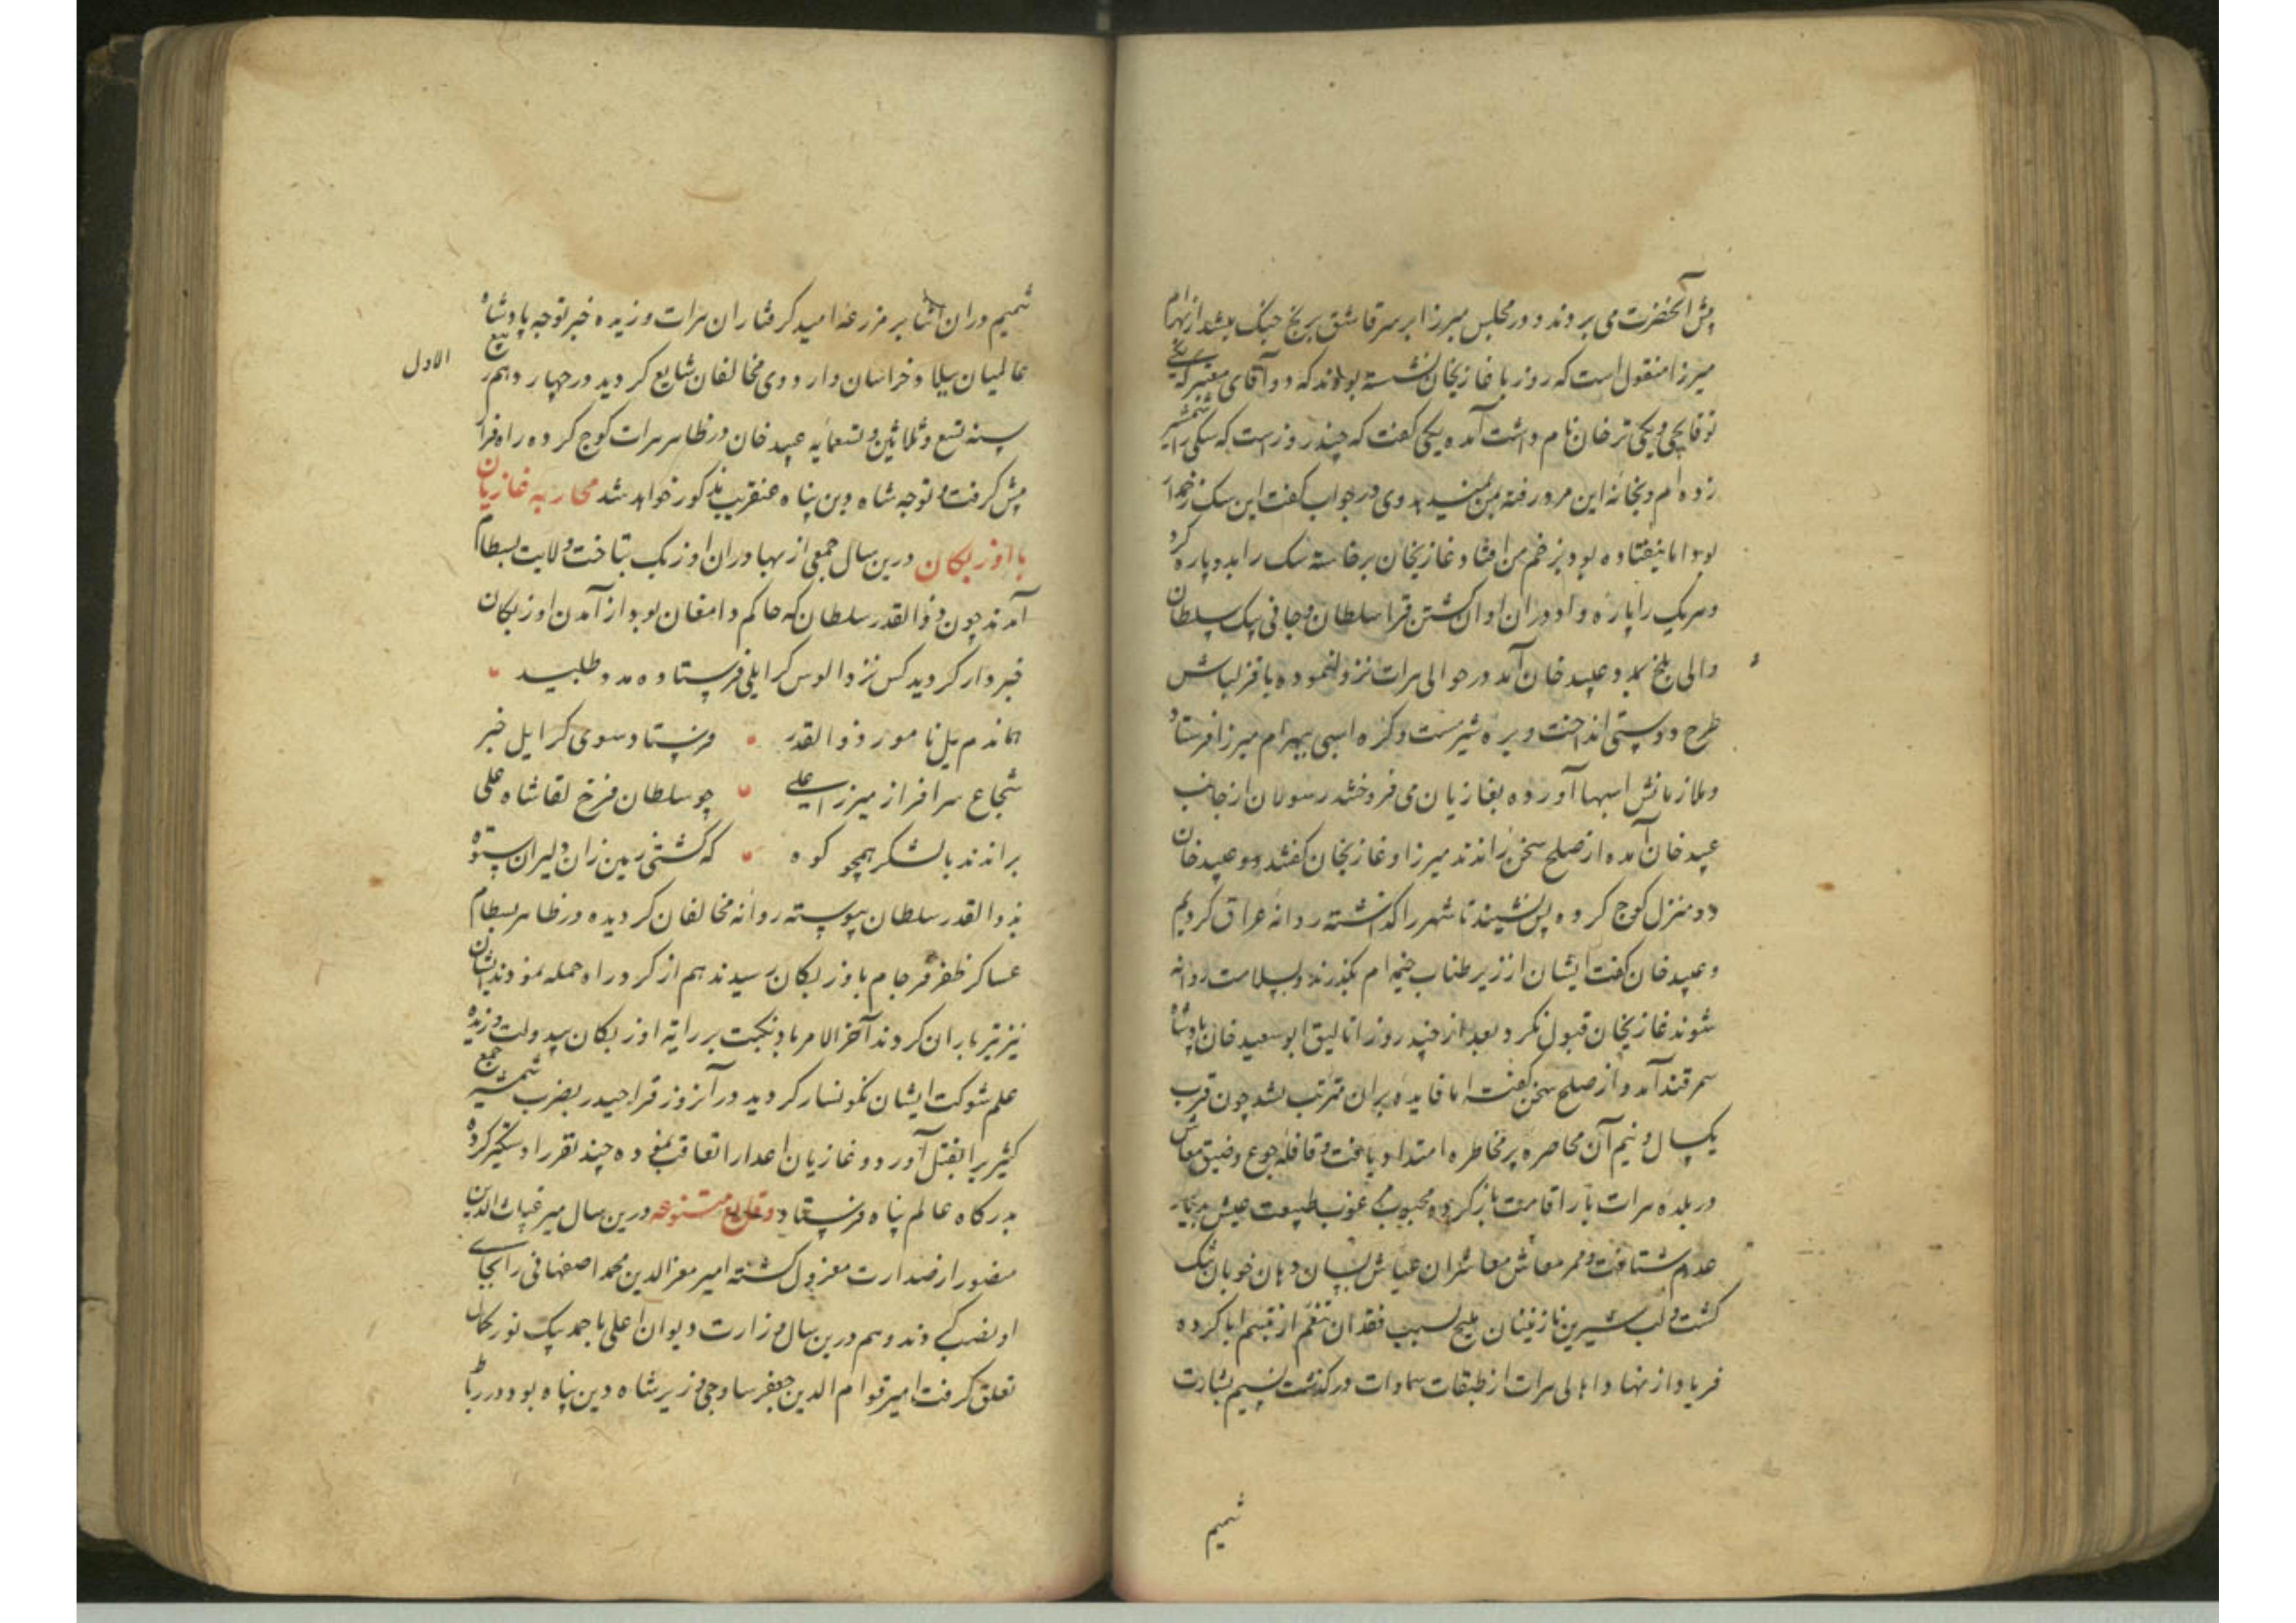 پیش آنحضرت می بردند و در مجلس میرزا بر سر قاشق برنج جنگ میشد از بهرام
میرزا منقول است که روزی با غازیخان نشسته بودند که دو آقای معتبر که یکی
توقاچی و یکی ترخان نام داشت آمده یکی گفت که چند روز است که سکی را شمشیر
زده ام و بخانه این مرد رفته بمن نمیدهد وی در جواب گفت این سک زخمدار
بود اما نیفتاده بود بزخم من افتاد غازیخان برخاسته سک را بدو پاره کرد
و هر یک را پاره داد و در ان اوان کشتن قرا سلطان و جانی بیک سلطان
والی بلخ بمدد عبید خان آمد در حوالی هرات نزول نموده با قزلباش
طرح دوستی انداخت و بره شیرمست و کره اسبی ببهرام میرزا فرستاد
و ملازمانش اسبها آورده بغازیان می فروختند رسولان از جانب
عبید خان آمده از صلح سخن راندند میرزا و غازیخان گفتند دو عبید خان
دو منزل کوچ کرده پس نشیند تا شهر را گذاشته روانه عراق کردیم
و عبید خان گفت ایشان از زیر طناب خیمه ام بگذرند و بسلامت روانه
شوند غازیخان قبول نکرد بعد از چند روز اتالیق ابو سعید خان پادشاه
سمرقند آمد و از صلح سخن گفت اما فایده بران مترتب نشد چون قرب
یکسال و نیم آن محاصره پر مخاطره امتداد یافت و قافله جوع و ضیق معاش
در بلده هرات بار اقامت باز کرده محبوب مرغوب طبیعت عیش بدیار
عدم شتافت و ممر معاش معاشران عیاش بسان دهان خوبان تنک
کشت و لب شیرین نازنینان ملیح بسبب فقدان تنعم از تبسم ابا کرده
فریاد از نهاد اهالی هرات از طبقات سماوات در کذشت نسیم بشارت
شمیم
شمیم در ان اثنا بر مزرعه امید کرفتاران هرات وزیده خبر توجه پادشاه
عالمیان ببلاد خراسان در اردوی مخالفان شایع کردید در چهاردهم ربیع
الاول
سنه تسع و ثلاثین و تسعمایه عبید خان در ظاهر هرات کوچ کرده راه فرار
پیش کرفت و توجه شاه دین پناه عنقریب مذکور خواهد شد محاربه غازیان
با اوزبکان درین سال جمعی از بهادران اوزبک بتاخت ولایت بسطام
آمدند چون ذوالقدر سلطان که حاکم دامغان بود از آمدن اوزبکان
خبردار کردید کس نزد الوس کرایلی فرستاده مدد طلبید
هماندم یل نامور ذوالقدر فرستاد سوی کرایل خبر
شجاع سرافراز میرزا علی چو سلطان فرخ لقا شاه علی
براندند با لشکر همچو کوه که کشتی زمین زان دلیران ستوه
بذوالقدر سلطان پیوسته روانه مخالفان کردیده در ظاهر بسطام
عساکر ظفر فرجام باوزبکان رسیدند هم از کرد راه حمله نمودند ایشان
نیز تیر باران کردند آخر الامر باد نکبت بر رایه اوزبکان بیدولت وزیده
علم شوکت ایشان نکونسار کردید در آنروز قراحیدر بضرب شمشیر جمع
کثیر را بقتل آورد و غازیان اعدا را تعاقب نموده چند نفر را دستکیر کرده
بدرکاه عالم پناه فرستاد وقایع متنوعه درین سال میر غیاث الدین
منصور از صدارت معزول کشته امیر معزالدین محمد اصفهانی را بجای
او نصب کردند و هم درین سال وزارت دیوان اعلی باحمد بیک نور کمال
تعلق کرفت امیر قوام الدین جعفر ساوجی وزیر شاه دین پناه بود در رباط